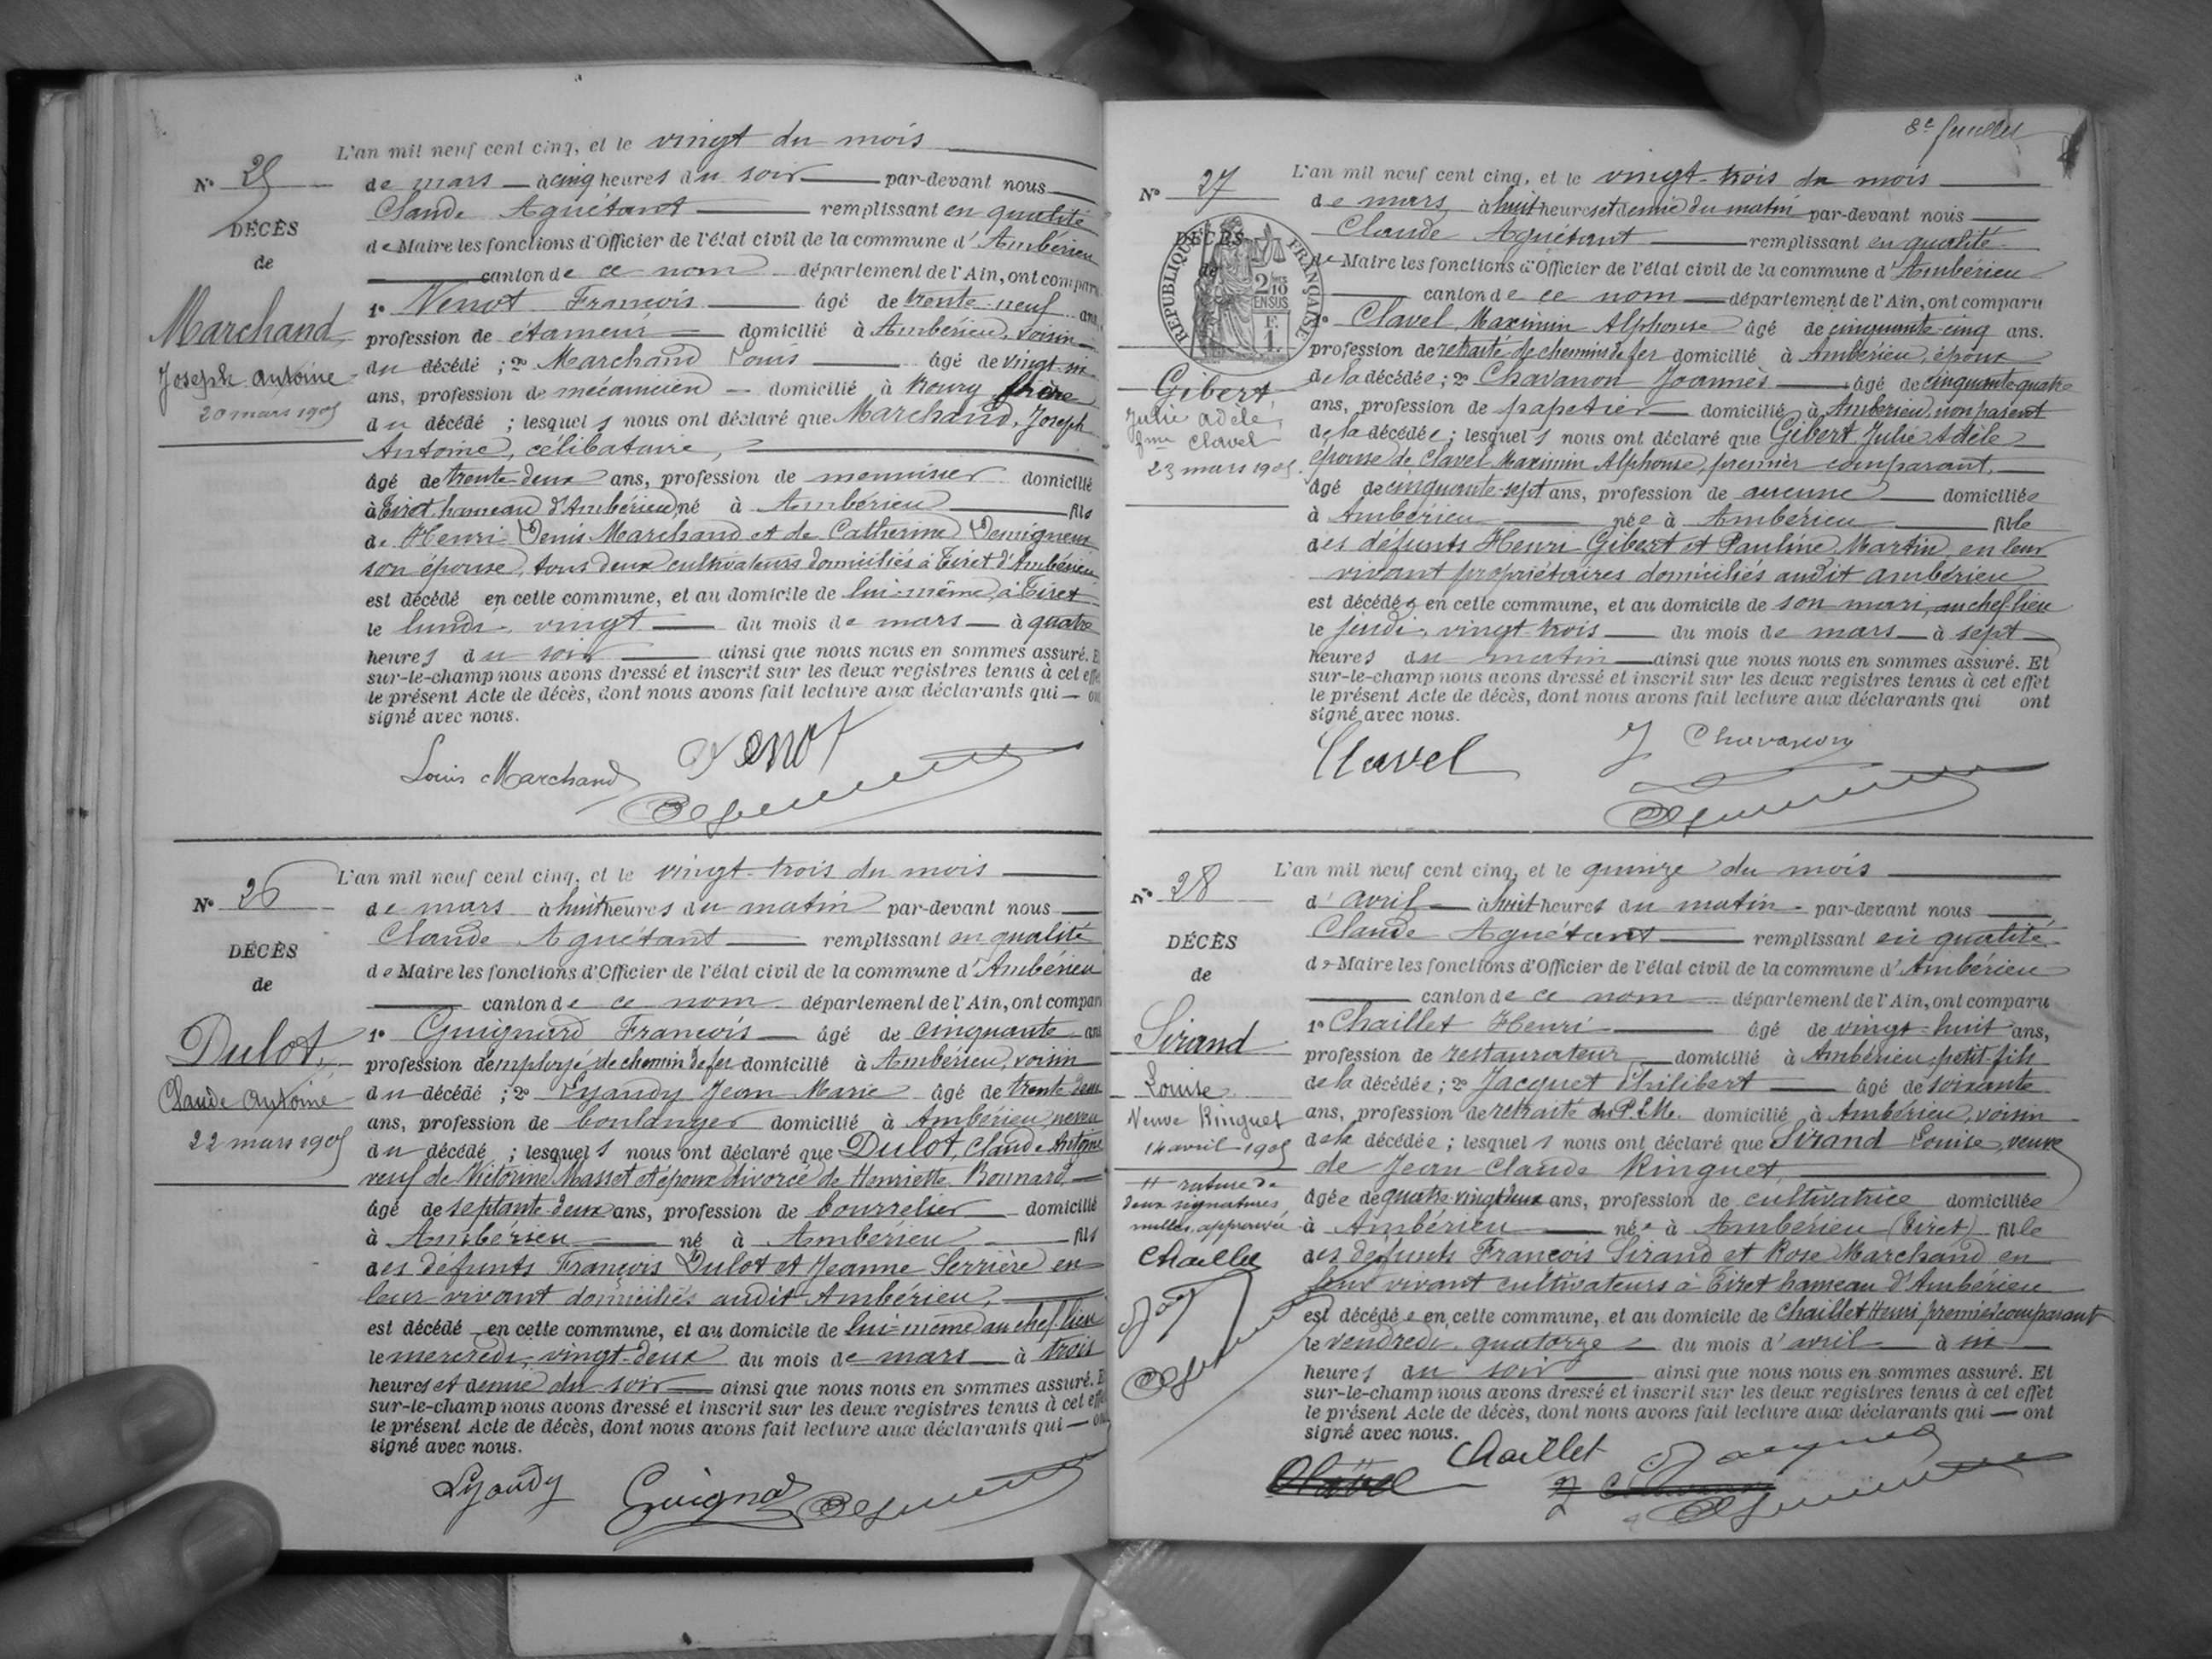 L'an mil neuf cent cinq, et le vingt du mois
N° 25
de mars à cinq heures du soir par-devant nous
Claude Aguétant remplissant en qualité
DÉCÈS
de Maire les fonctions d'Officier de l'état civil de la commune d'Ambérieu
de
canton de ce nom département de l'Ain, ont comparu
1° Venot François âgé de trente-neuf ans
Marchand
profession de étameur domicilié à Ambérieu, voisin
du décédé ; 2° Marchand Louis âgé de vingt-six
Joseph Antoine
ans, profession de mécanicien domicilié à frère
20 mars 1905
du décédé ; lesquels nous ont déclaré que Marchand, Joseph
Antoine, célibataire,
âgé de trente-deux ans, profession de menuisier domicilié
à Tiret, hameau d'Ambérieu né à Ambérieu fils
de Henri Denis Marchand et de Catherine
son épouse, tous deux cultivateurs domiciliés à Tiret d'Ambérieu
est décédé en cette commune, et au domicile de lui-même, à Tiret
le lundi vingt du mois de mars à quatre
heures du soir ainsi que nous nous en sommes assuré. E
sur-le-champ nous avons dressé et inscrit sur les deux registres tenus à cet effet
le présent Acte de décès, dont nous avons fait lecture aux déclarants qui ont
signé avec nous.
Louis Marchand Venot
L'an mil neuf cent cinq, et le vingt-trois du mois
N° 26
de mars à huit heures du matin par-devant nous
Claude Aguétant remplissant en qualité
DÉCÈS
de Maire les fonctions d'Officier de l'état civil de la commune d'Ambérieu
de
canton de ce nom département de l'Ain, ont comparu
1° Guignard François âgé de cinquante ans
Dulot,
profession d'employé de chemin de fer domicilié à Ambérieu, voisin
du décédé ; 2° Lyaudy Jean Marie âgé de trente-deux
Claude Antoine
ans, profession de boulanger domicilié à Ambérieu, neveu
22 mars 1905
du décédé ; lesquels nous ont déclaré que Dulot, Claude Antoine
veuf de Victorine Masset et époux divorcé de Henriette Bonnard
âgé de septante-deux ans, profession de bourrelier domicilié
à Ambérieu né à Ambérieu fils
des défunts François Dulot et Jeanne Serrière en
leur vivant domiciliés audit Ambérieu,
est décédé en cette commune, et au domicile de lui-même au chef-lieu
le mercredi, vingt-deux du mois de mars à trois
heures et demie du soir ainsi que nous nous en sommes assuré. E
sur-le-champ nous avons dressé et inscrit sur les deux registres tenus à cet effet
le présent Acte de décès, dont nous avons fait lecture aux déclarants qui ont
signé avec nous.
Lyaudy Guignard
8e feuillet
L'an mil neuf cent cinq, et le vingt-trois du mois
N° 27
de mars à huit heures et demie du matin par-devant nous
Claude Aguétant remplissant en qualité
DÉCÈS
de
RÉPUBLIQUE FRANÇAISE
2/10 EN SUS
F. 1.
de Maire les fonctions d'Officier de l'état civil de la commune d'Ambérieu
canton de ce nom département de l'Ain, ont comparu
1° Clavel Maximin Alphonse âgé de cinquante-cinq ans.
profession de retraité de chemins de fer domicilié à Ambérieu, époux
Gibert
de la décédée ; 2° Chavanon Joannès âgé de cinquante-quatre
Julie Adèle,
ans, profession de papetier domicilié à Ambérieu, non parent
fme Clavel
de la décédée ; lesquels nous ont déclaré que Gibert Julie Adèle
23 mars 1905.
épouse de Clavel Maximin Alphonse, premier comparant,
âgée de cinquante-sept ans, profession de aucune domiciliée
à Ambérieu née à Ambérieu fille
des défunts Henri Gibert et Pauline Martin, en leur
vivant propriétaires domiciliés audit Ambérieu
est décédée en cette commune, et au domicile de son mari, au chef-lieu
le jeudi, vingt trois du mois de mars à sept
heures du matin ainsi que nous nous en sommes assuré. Et
sur-le-champ nous avons dressé et inscrit sur les deux registres tenus à cet effet
le présent Acte de décès, dont nous avons fait lecture aux déclarants qui ont
signé avec nous.
Clavel J Chavanon
L'an mil neuf cent cinq, et le quinze du mois
N° 28
d'avril à huit heures du matin par-devant nous
Claude Aguétant remplissant en qualité
DÉCÈS
de Maire les fonctions d'Officier de l'état civil de la commune d'Ambérieu
de
canton de ce nom département de l'Ain, ont comparu
1° Chaillet Henri âgé de vingt-huit ans,
Sirand
profession de restaurateur domicilié à Ambérieu, petit-fils
de la décédée ; 2° Jacquet Philibert âgé de soixante
Louise
ans, profession de retraité du P.L.M. domicilié à Ambérieu, voisin
Veuve Ringuet
de la décédée ; lesquels nous ont déclaré que Sirand Louise, veuve
14 avril 1905
de Jean Claude Ringuet,
rature de
deux signatures
nulles, approuvée
Chaillet
âgée de quatre-vingt-deux ans, profession de cultivatrice domiciliée
à Ambérieu née à Ambérieu (Tiret) fille
des défunts François Sirand et Rose Marchand en
leur vivant cultivateurs à Tiret hameau d'Ambérieu
est décédée en cette commune, et au domicile de Chaillet Henri premier comparant
le vendredi, quatorze du mois d'avril à six
heures du soir ainsi que nous nous en sommes assuré. Et
sur-le-champ nous avons dressé et inscrit sur les deux registres tenus à cet effet
le présent Acte de décès, dont nous avons fait lecture aux déclarants qui ont
signé avec nous.
Clavel Chaillet J Chavanon Jacquet